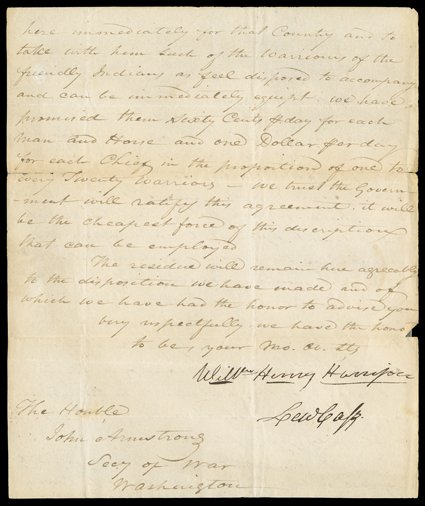 here immediately for that Country and to
take with him such of the Warriors of the
friendly Indians as feel disposed to accompany
and can be immediately equipt. we have
promised them Sixty Cents P day for each
Man and Horse and one Dollar per day
for each Chief in the proportion of one to
every Twenty Warriors – we trust the Govern-
-ment will ratify this agreement. it will
be the cheapest force of this description
that can be employed
The residue will remain here agreeably
to the disposition we have made and of
which we have had the honor to advise you
very respectfully we have the honor
to be your Mo. Ob. Sts
Willm Henry Harrison
Lew Cass
The Honble
John Armstrong
Secy of War
Washington